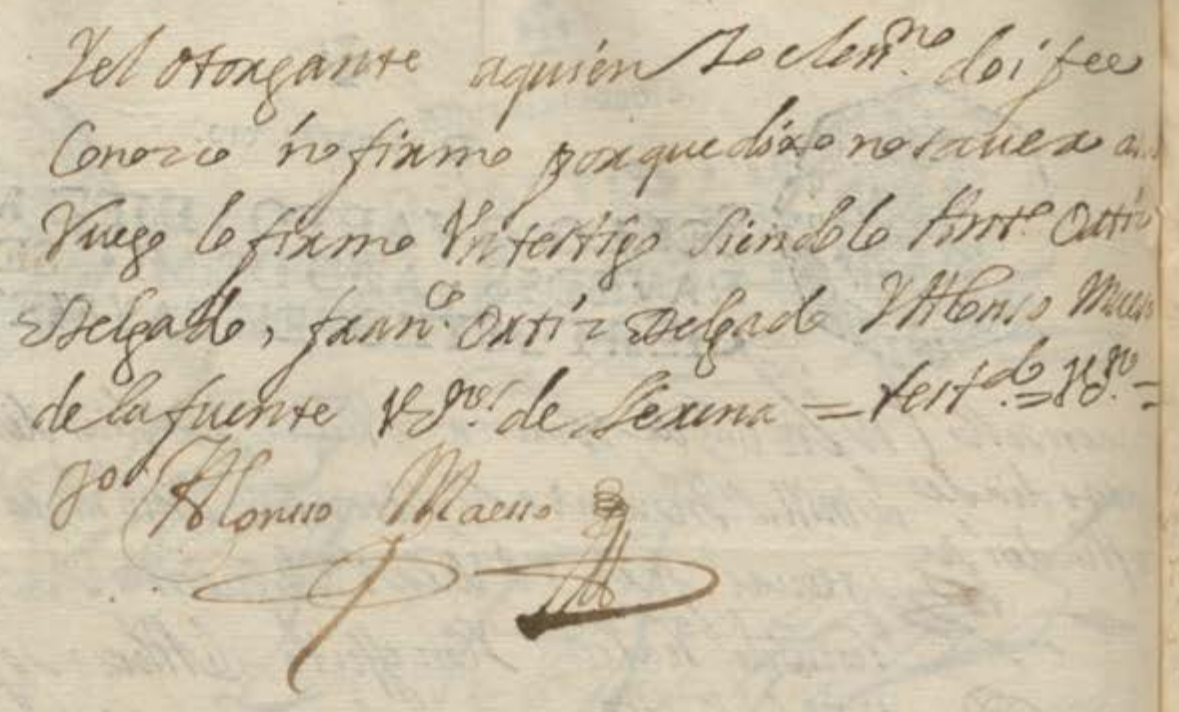 Y el otorgante aquien Yo el essno. doi fee
Conozco no firmo porque dixo no sauer a
Ruego lo firmo Vn testigo siendolo Ortiz
Delgado, franco. Ortiz Delgado Y Alonso Maess
de la fuente de Lexena = testdo. =
Alonsso Maesso